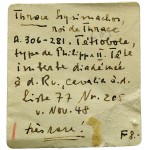 Thrace Lysimachos,
roi de Thrace
A. 306-281. Tétrobole,
type de Philippe II. Tête
imberbe diadémée
à d. Rv. cavalier à d.
Liste 77 No. 205
v. Nov. 48
Très rare.
F 8.-